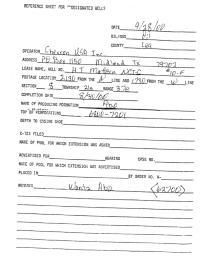 REFERENCE SHEET FOR "DESIGNATED WELL"
DATE 9/28/00
OIL/GAS Oil
COUNTY Lea
OPERATOR Chevron USA Inc
ADDRESS PO Box 1150 Midland Tx 79702
LEASE NAME, WELL NO. H.T. Mattern NCT-C #10-F
FOOTAGE LOCATION 2190 FROM THE N LINE AND 1790 FROM THE W LINE
SECTION TOWNSHIP 21s RANGE 37e
COMPLETION DATE 8/31/00
NAME OF PRODUCING FORMATION Abo
TOP OF PERFORATIONS 6808-7201
DEPTH TO CASING SHOE
C-123 FILED
NAME OF POOL FOR WHICH EXTENSION WAS ASKED
ADVERTISED FOR HEARING CASE NO.
NAME OF POOL FOR WHICH EXTENSION WAS ADVERTISED
PLACED IN BY ORDER NO. R-
REMARKS Wantz Abo (62700)